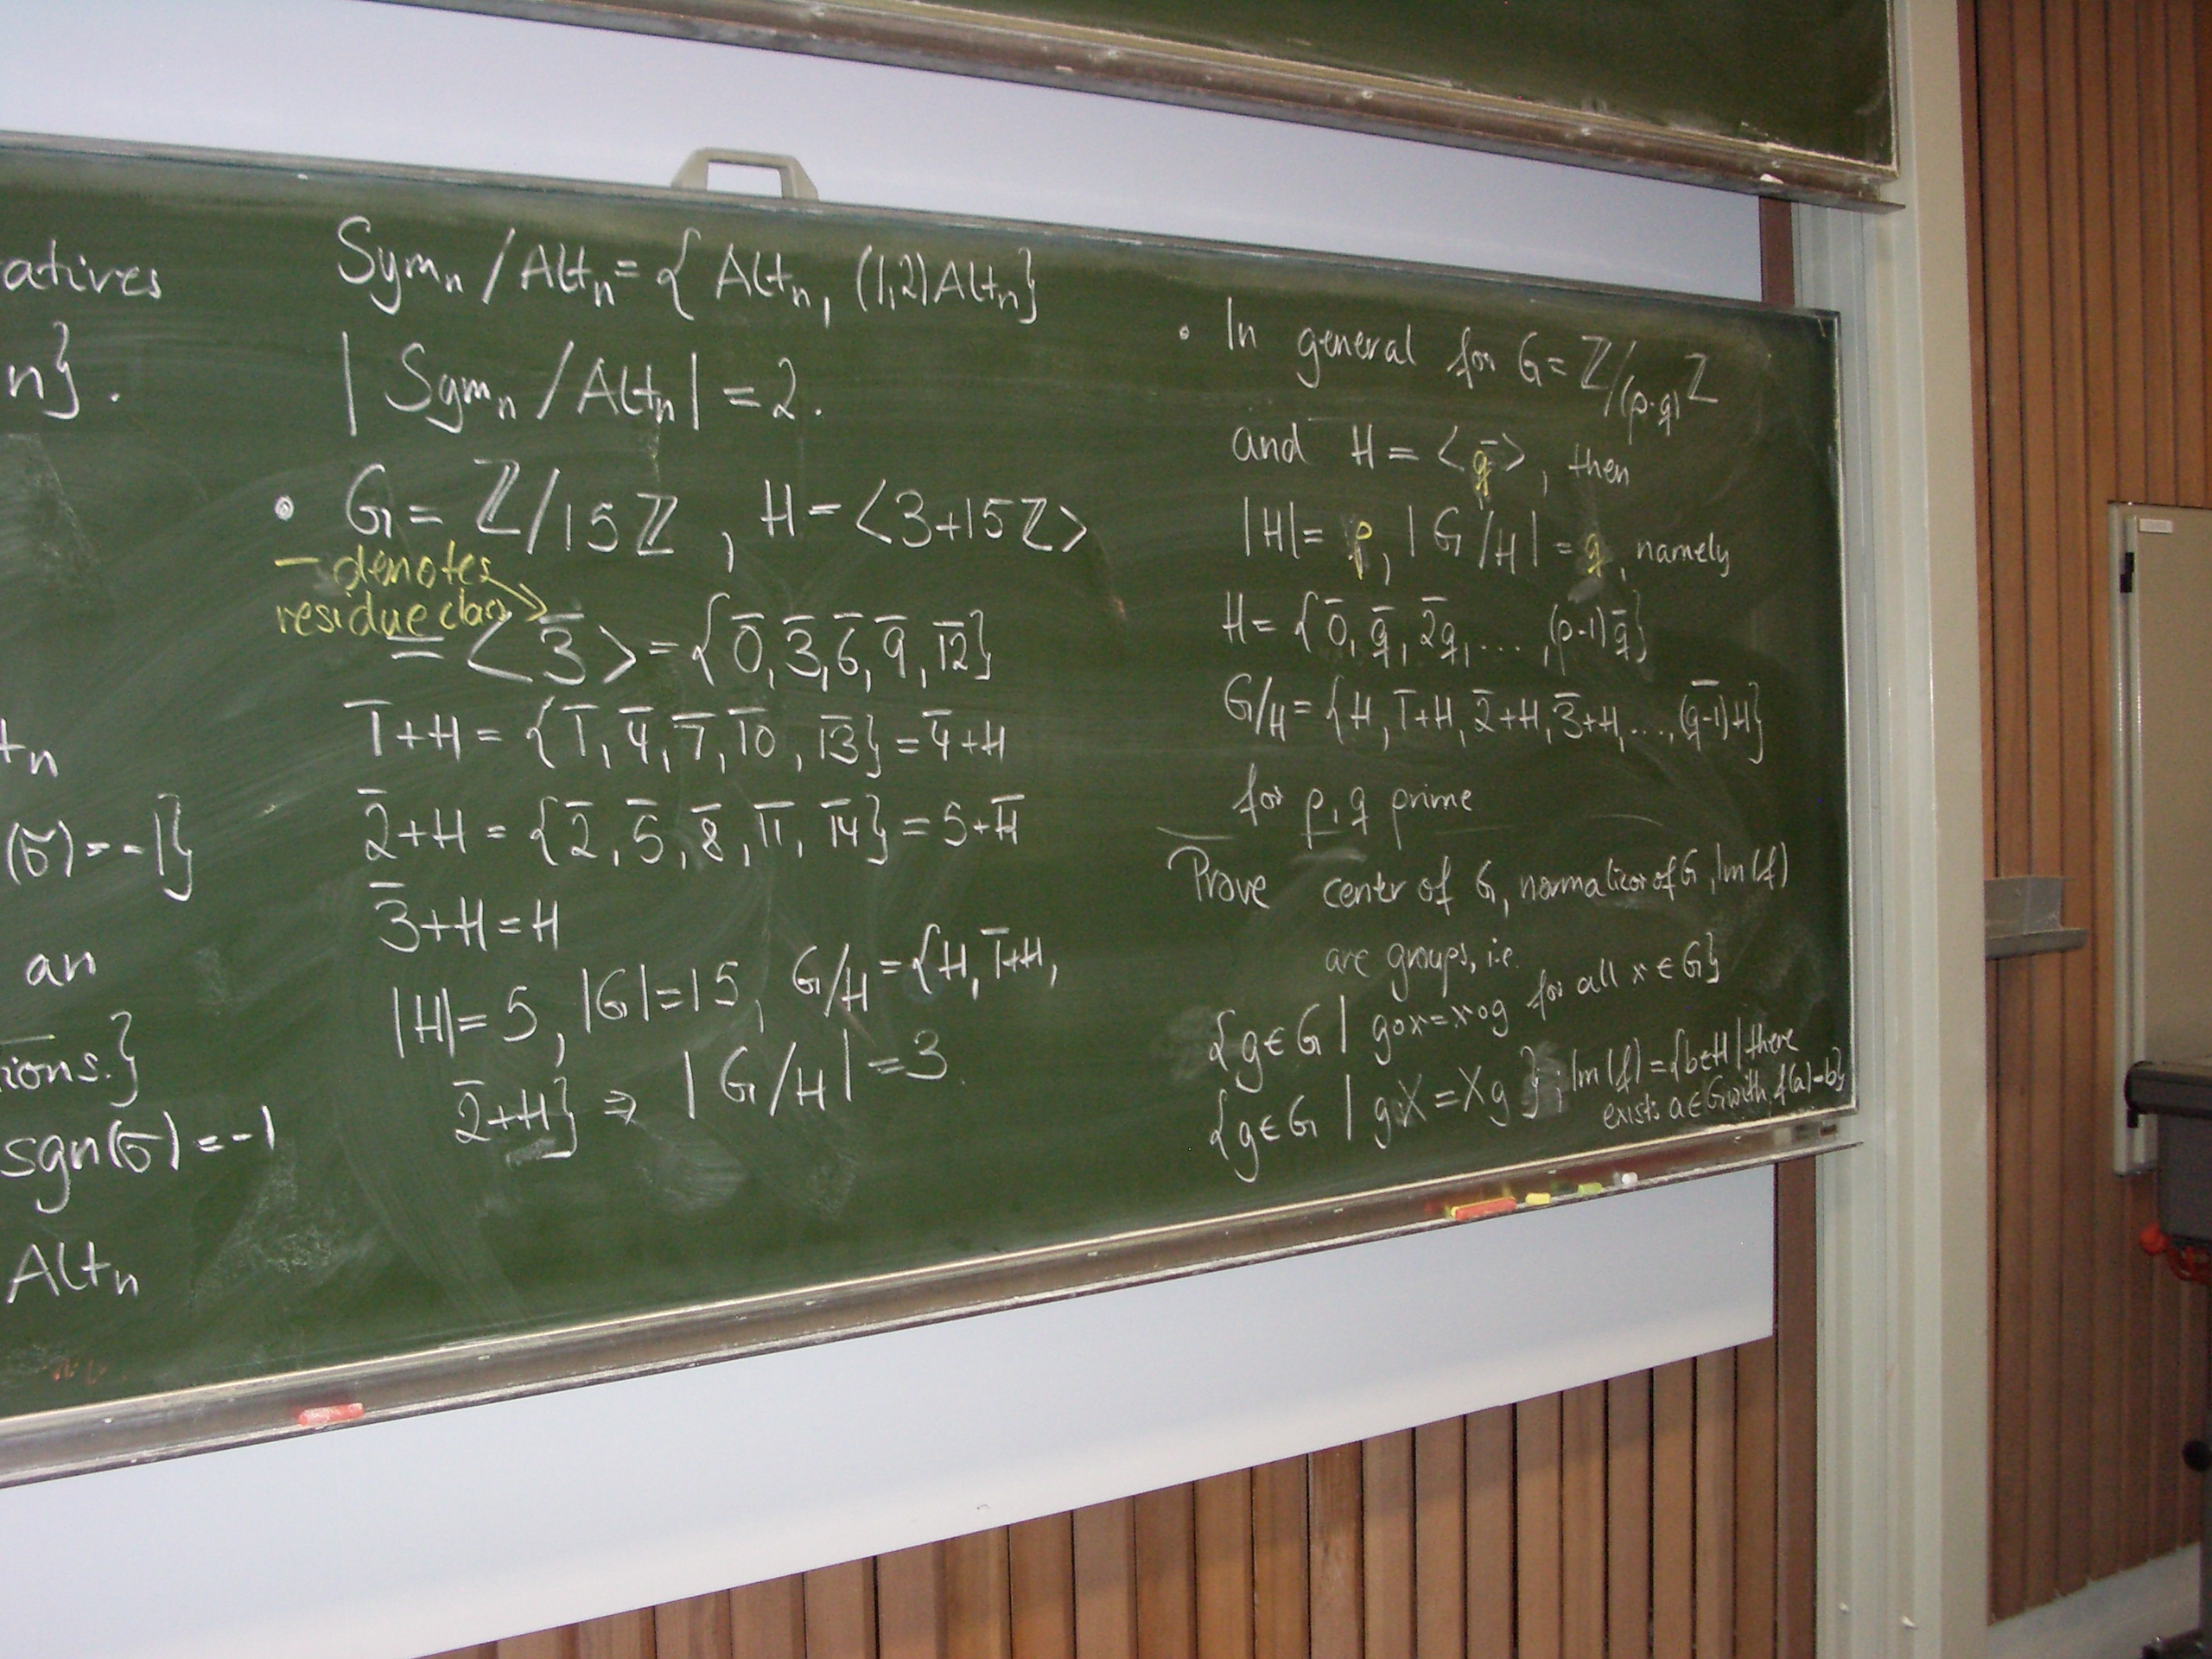 atives
n}.
tn
(σ) = -1}
an
ions.}
sgn(σ) = -1
Altn
Symₙ/Altₙ = { Altₙ, (1,2)Altₙ}
| Symₙ/Altₙ | = 2.
• G = ℤ/15ℤ , H = <3+15ℤ>
— denotes
residue class
= < 3̄ > = {0̄, 3̄, 6̄, 9̄, 1̄2̄}
1̄+H = {1̄, 4̄, 7̄, 1̄0̄, 1̄3̄} = 4̄+H
2̄+H = {2̄, 5̄, 8̄, 1̄1̄, 1̄4̄} = 5+H̄
3̄+H = H
|H| = 5, |G| = 15, G/H = {H, 1̄+H,
2̄+H} ⇒ |G/H| = 3.
• In general for G = ℤ/(p·q)ℤ
and H = <q̄>, then
|H| = p, |G/H| = q, namely
H = {0̄, q̄, 2̄q, ..., (p-1)q̄}
G/H = {H, 1̄+H, 2̄+H, 3̄+H, ..., (q̄-̄1̄)+H}
for p, q prime
Prove center of G, normalizor of G, Im(f)
are groups, i.e.
{g ∈ G | g∘x = x∘g for all x ∈ G}
{g ∈ G | gX = Xg }; Im(f) = {b∈H | there
exists a ∈ G with f(a)=b}